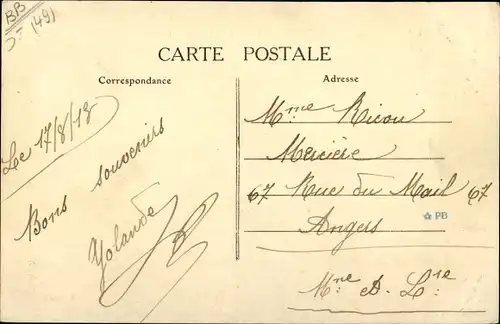 BB
(49)
CARTE POSTALE
Correspondance
Adresse
Le 17/8/18
Bons souvenirs
Yolande
Mme Ricou
Mercière
67 Rue du Mail 67
Angers
PB
Mne & Lre